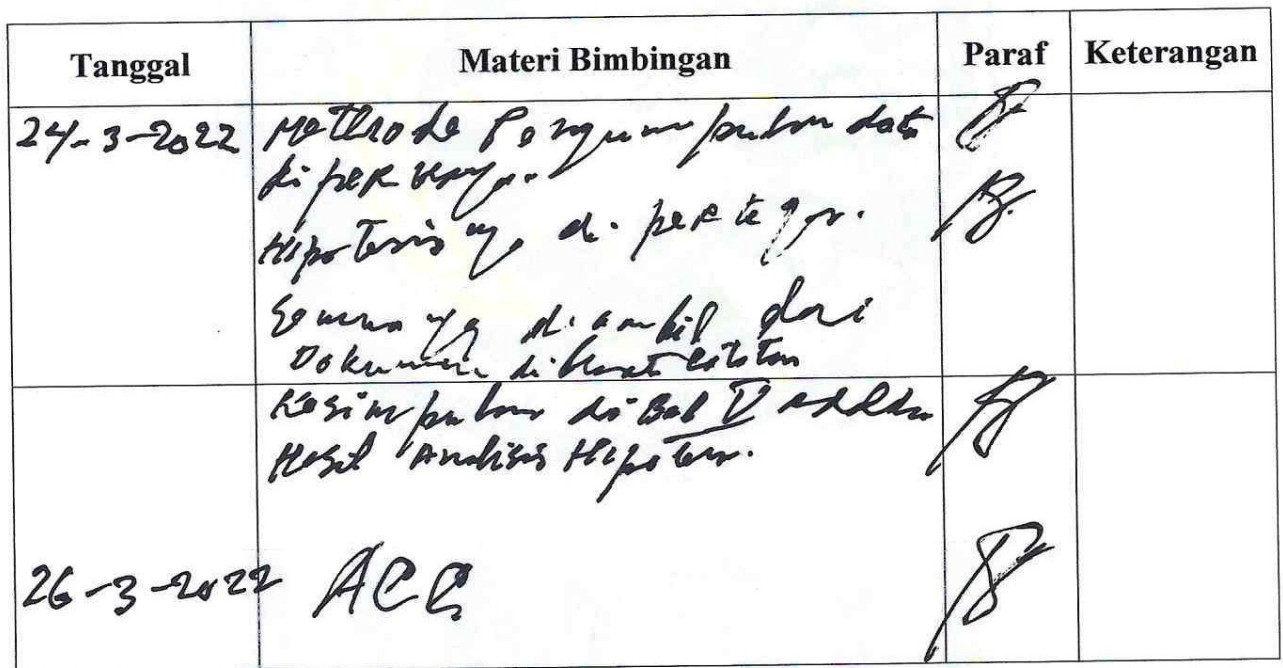 Tanggal Materi Bimbingan Paraf Keterangan
24-3-2022 Methode Pengumpulan data
di pertegas.
Hipotesis nya di pertegas.
Semua nya di ambil dari
Dokumen di catatan
Kesimpulan di Bab V adalah
Hasil Analisis Hipotesis.
26-3-2022 ACC